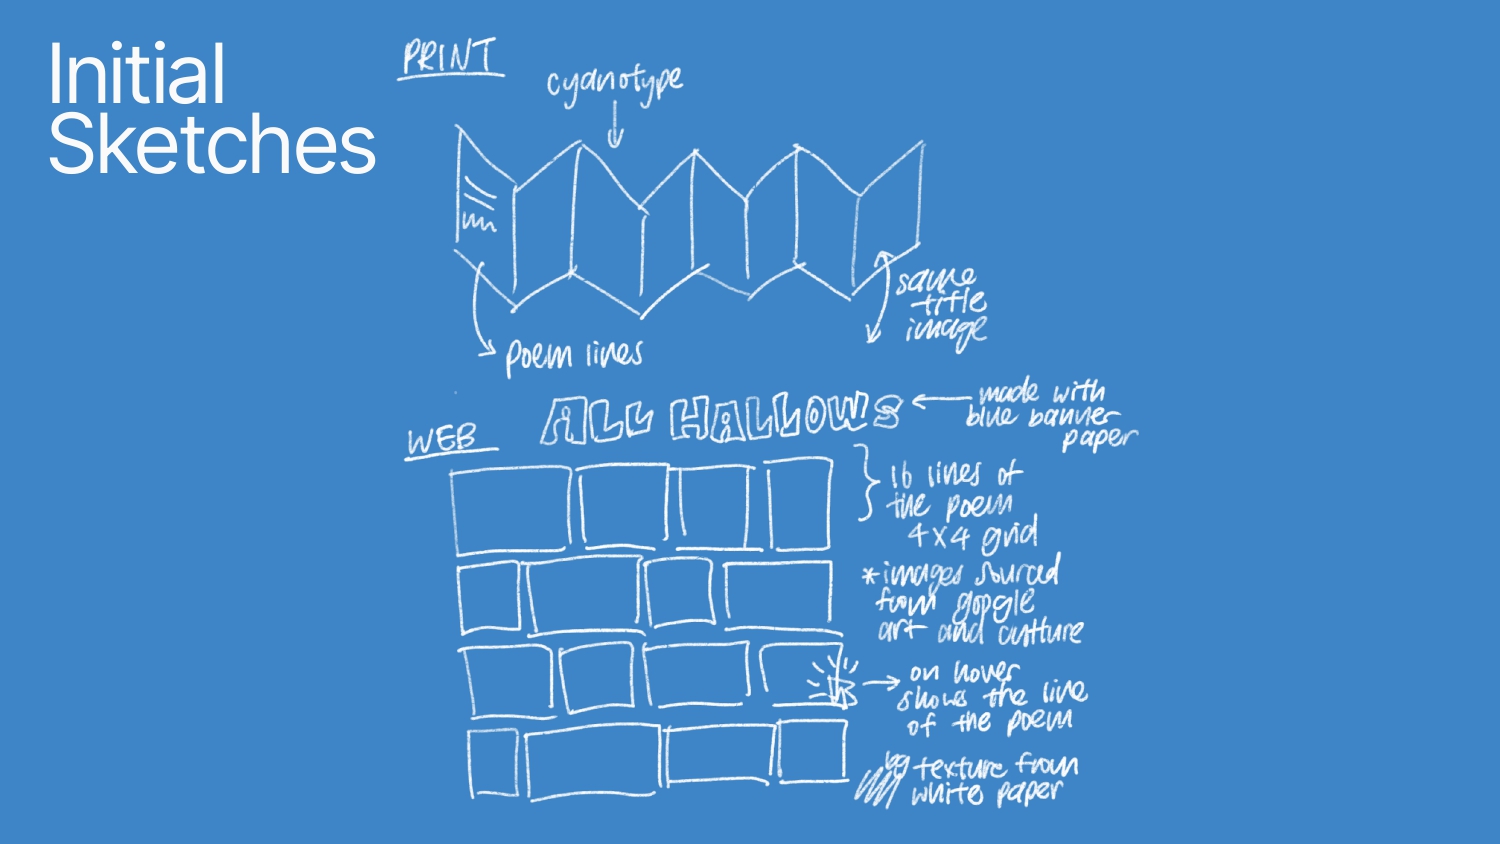 Initial
Sketches
PRINT
cyanotype
same
title
image
poem lines
ALL HALLOWS
made with
blue banner
paper
WEB
16 lines of
the poem
4x4 grid
*images sourced
from google
art and culture
on hover
shows the line
of the poem
texture from
white paper